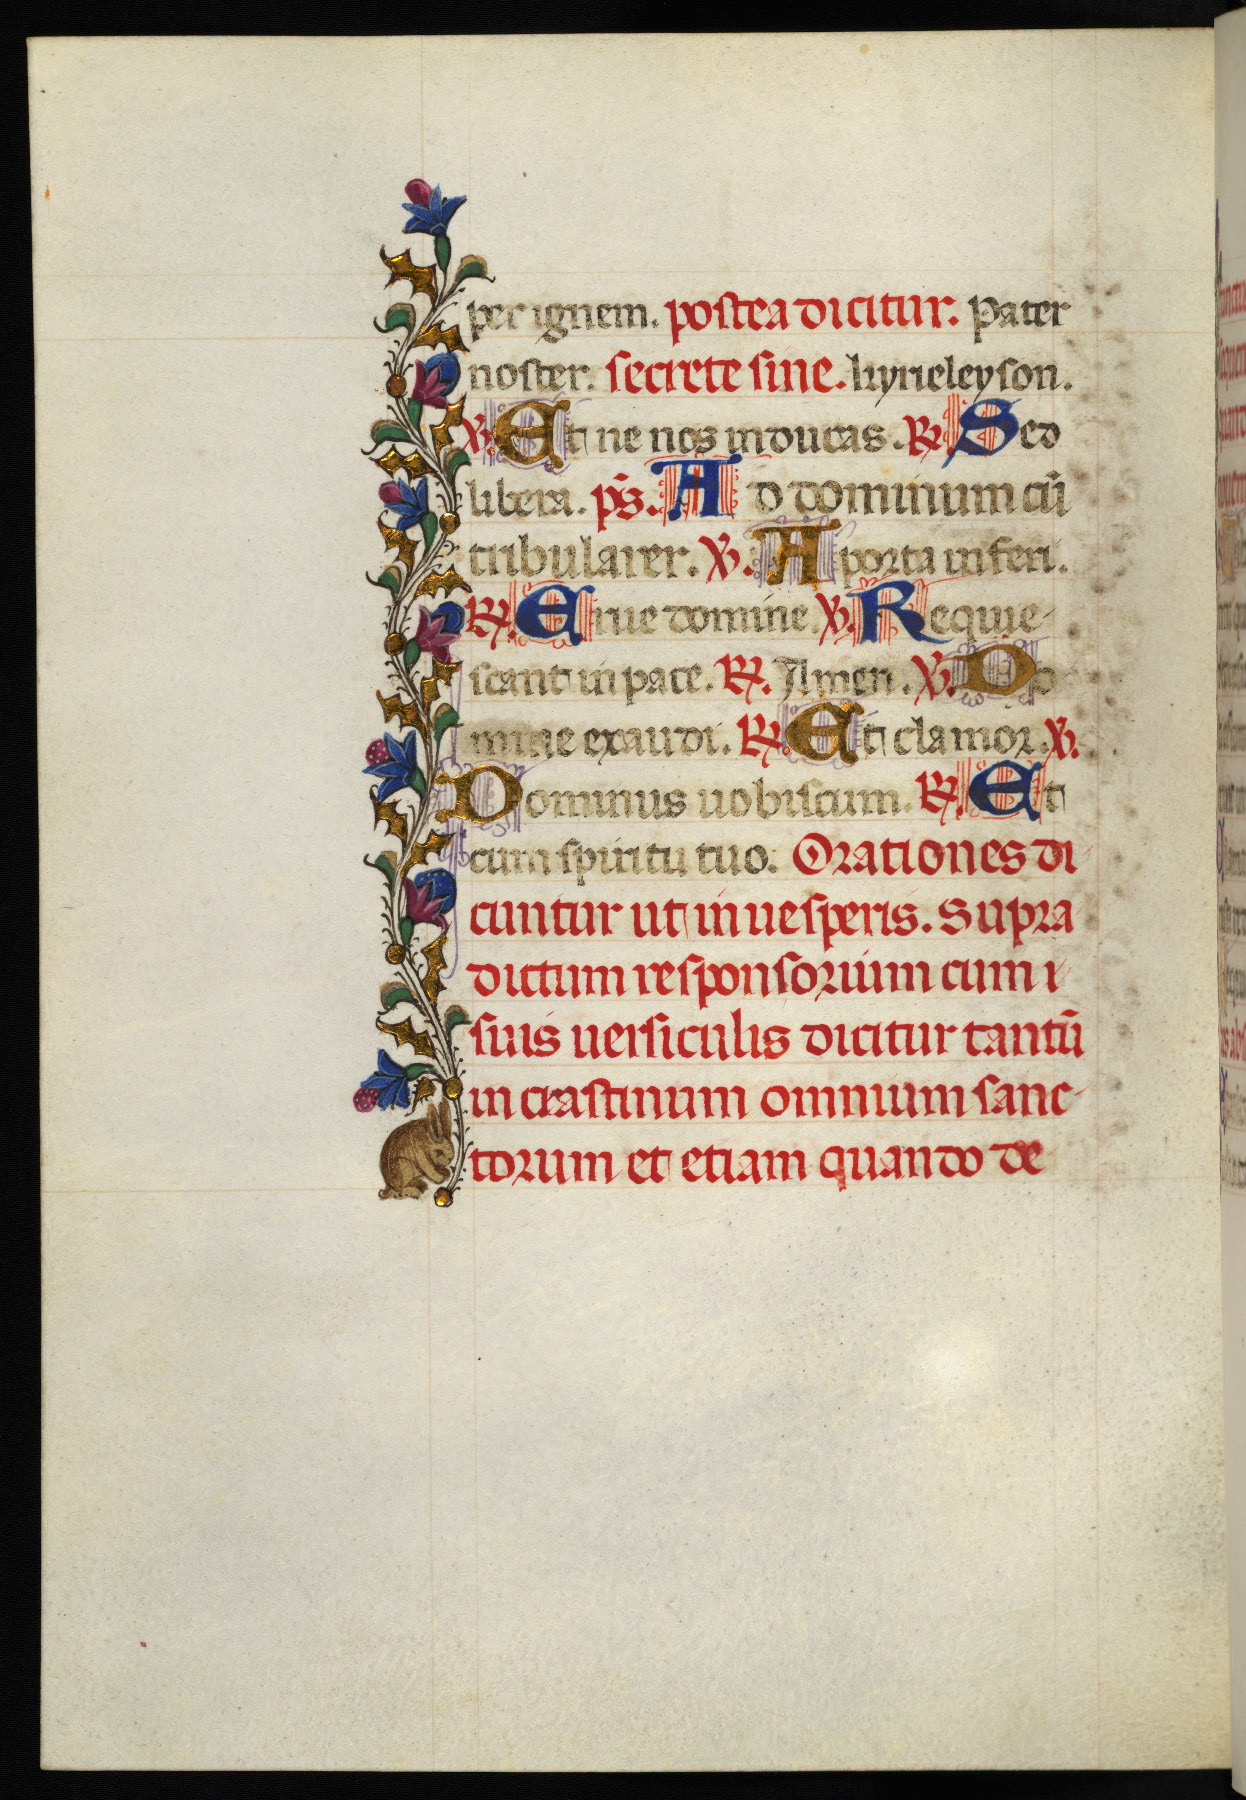 per ignem. postea dicitur. Pater
noster. secrete sine. kyrieleyson.
℣. Et ne nos inducas. ℟. Sed
libera. ps. Ad dominum cū
tribularer. ℣. A porta inferi.
℟. Erue domine. ℣. Requie-
scant in pace. ℟. Amen. ℣. Do
mine exaudi. ℟. Et clamor. ℣.
Dominus uobiscum. ℟. Et
cum spiritu tuo. Orationes di
cuntur ut in uesperis. Supra
dictum responsorium cum
suis uersiculis dicitur tantū
in crastinum omnium sanc-
torum et etiam quando de